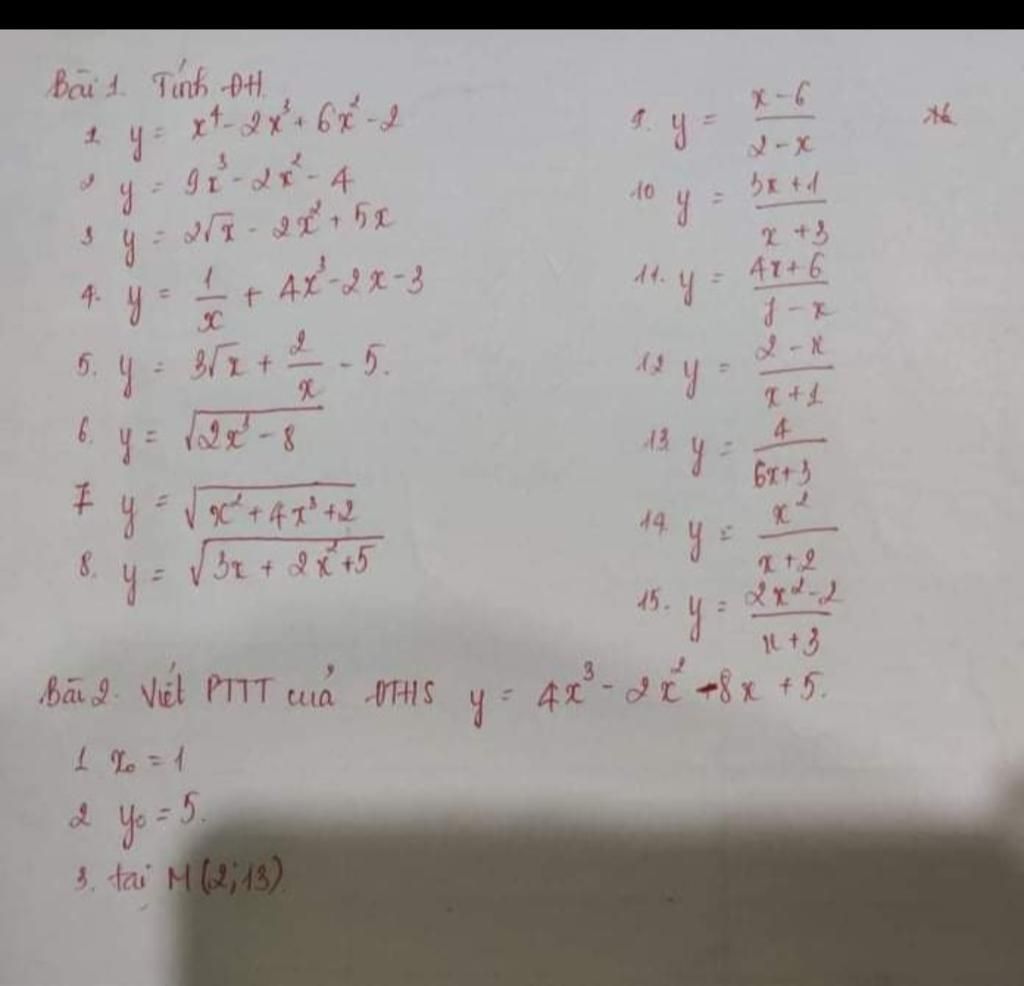 Bài 1. Tính ĐH.
1 y = x⁴ - 2x³ + 6x² - 2
2 y = 9x³ - 2x² - 4
3 y = 2√x - 2x² + 5x
4. y = 1/x + 4x³ - 2x - 3
5. y = 3√x + 2/x - 5.
6. y = √(2x³ - 8)
7 y = √(x² + 4x³ + 2)
8. y = √(3x + 2x² + 5)
9. y = (x - 6)/(2 - x)
10 y = (3x + 1)/(x + 3)
11. y = (4x + 6)/(1 - x)
12 y = (2 - x)/(x + 1)
13 y = 4/(6x + 3)
14. y = x²/(x + 2)
15. y = (2x² - 2)/(x + 3)
Bài 2. Viết PTTT của ĐTHS y = 4x³ - 2x² - 8x + 5.
1 x₀ = 1
2 y₀ = 5.
3. tại M(2; 13)